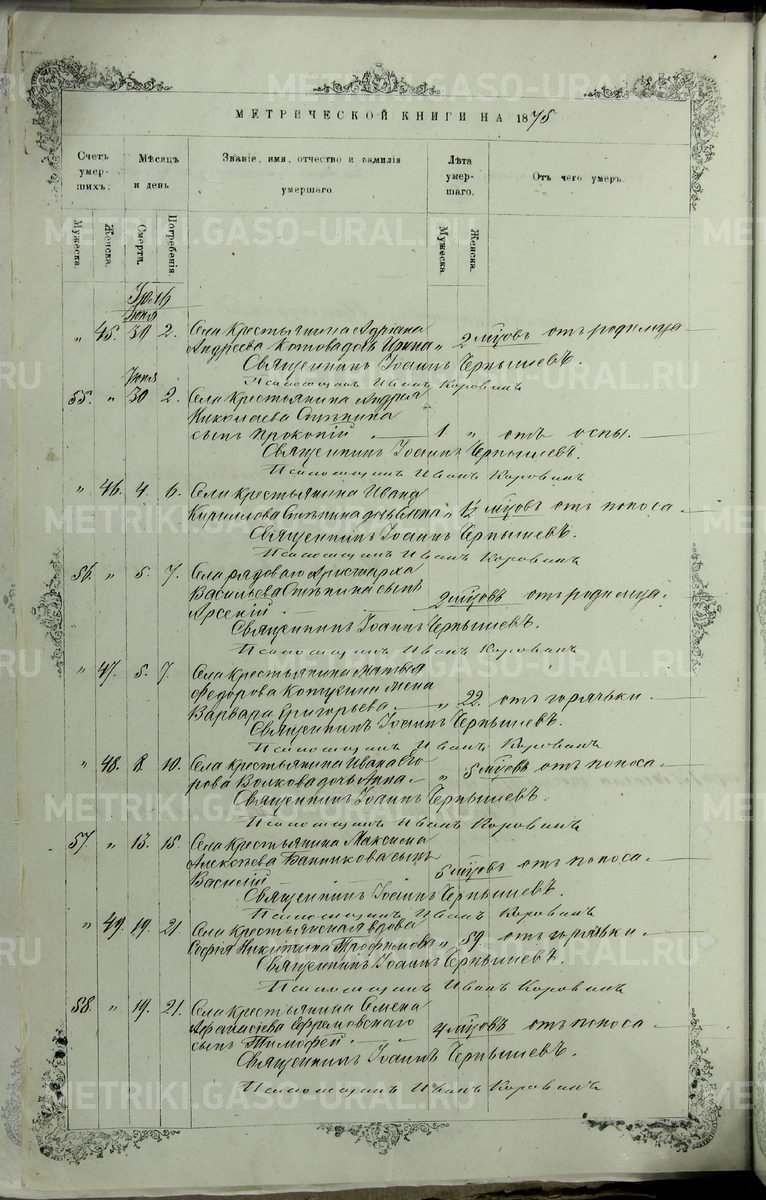 METRIKI.GASO-URAL.RU
МЕТРИЧЕСКОЙ КНИГИ НА 1875
Счетъ умершихъ.
Мѣсяцъ и день
Званіе, имя, отчество и фамилія умершаго.
Лѣта умершаго.
Отъ чего умеръ.
Мужеска.
Женска.
Смерти.
Погребенія.
Мужеска.
Женска.
Іюня
„ 45. 30 2. Села крестьянина Адріана
Андреева дочь Ирина „ 2 мцовъ отъ родимца.
Священникъ Іоаннъ Чернышевъ.
Псаломщикъ Иванъ Коровинъ
Іюня
55. „ 30 2. Села крестьянина Андрея
Николаева
сынъ Прокопій 1 „ отъ оспы.
Священникъ Іоаннъ Чернышевъ.
Псаломщикъ Иванъ Коровинъ
„ 46. 4. 6. Села крестьянина Ивана
Кириллова дочь Елена „ 1½ мцовъ отъ поноса.
Священникъ Іоаннъ Чернышевъ.
Псаломщикъ Иванъ Коровинъ
56. „ 5. 7. Села рядоваго Аристарха
Васильева сынъ
Арсеній 2 мцовъ отъ родимца.
Священникъ Іоаннъ Чернышевъ.
Псаломщикъ Иванъ Коровинъ
„ 47. 5. 7. Села крестьянина Матвѣя
Федорова жена
Варвара Григорьева „ 22. отъ горячьки.
Священникъ Іоаннъ Чернышевъ.
Псаломщикъ Иванъ Коровинъ
„ 48. 8. 10. Села крестьянина Ивана Его
рова Волкова дочь Анна „ 5 мцовъ отъ поноса.
Священникъ Іоаннъ Чернышевъ.
Псаломщикъ Иванъ Коровинъ
57. „ 13. 15. Села крестьянина Максима
Алексѣева Банникова сынъ
Василій 5 мцовъ отъ поноса.
Священникъ Іоаннъ Чернышевъ.
Псаломщикъ Иванъ Коровинъ
„ 49. 19. 21. Села крестьянская вдова
Софія Никитина Трофимова „ 59. отъ горячьки.
Священникъ Іоаннъ Чернышевъ.
Псаломщикъ Иванъ Коровинъ
58. „ 19. 21. Села крестьянина Семена
Афанасіева Ефремовскаго
сынъ Тимофей. 4 мцовъ отъ поноса
Священникъ Іоаннъ Чернышевъ.
Псаломщикъ Иванъ Коровинъ